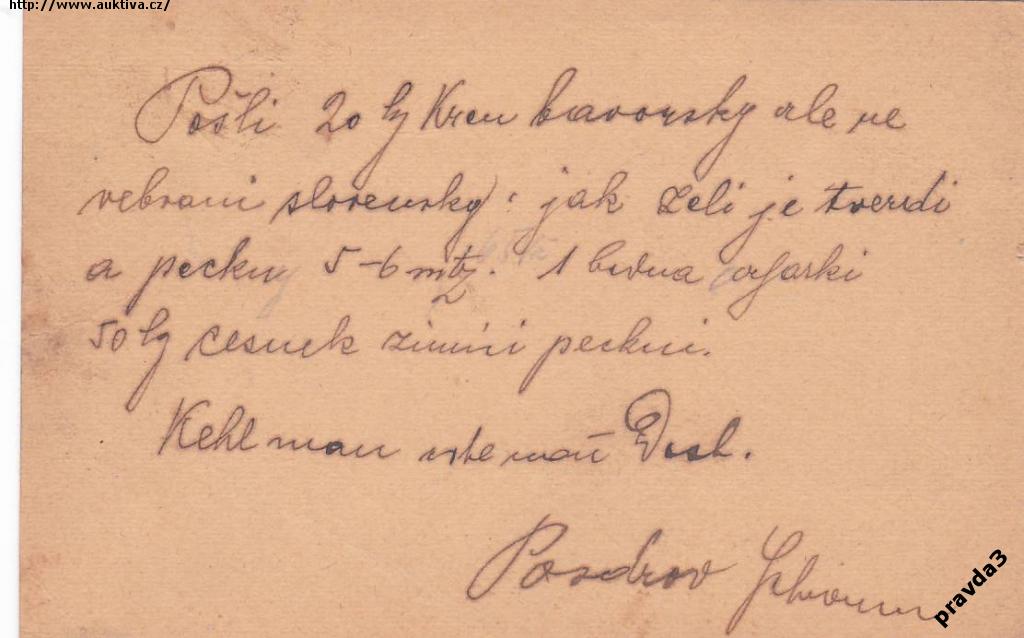 http://www.auktiva.cz/
Pošli 20 kg Kren bavorsky ale ne
vebrani slovensky: jak zeli je tverdi
a peckny 5-6 mtz. 1 bedna
50 kg cesnek zimni peckni.
Kehl man
Pozdrov
pravda3